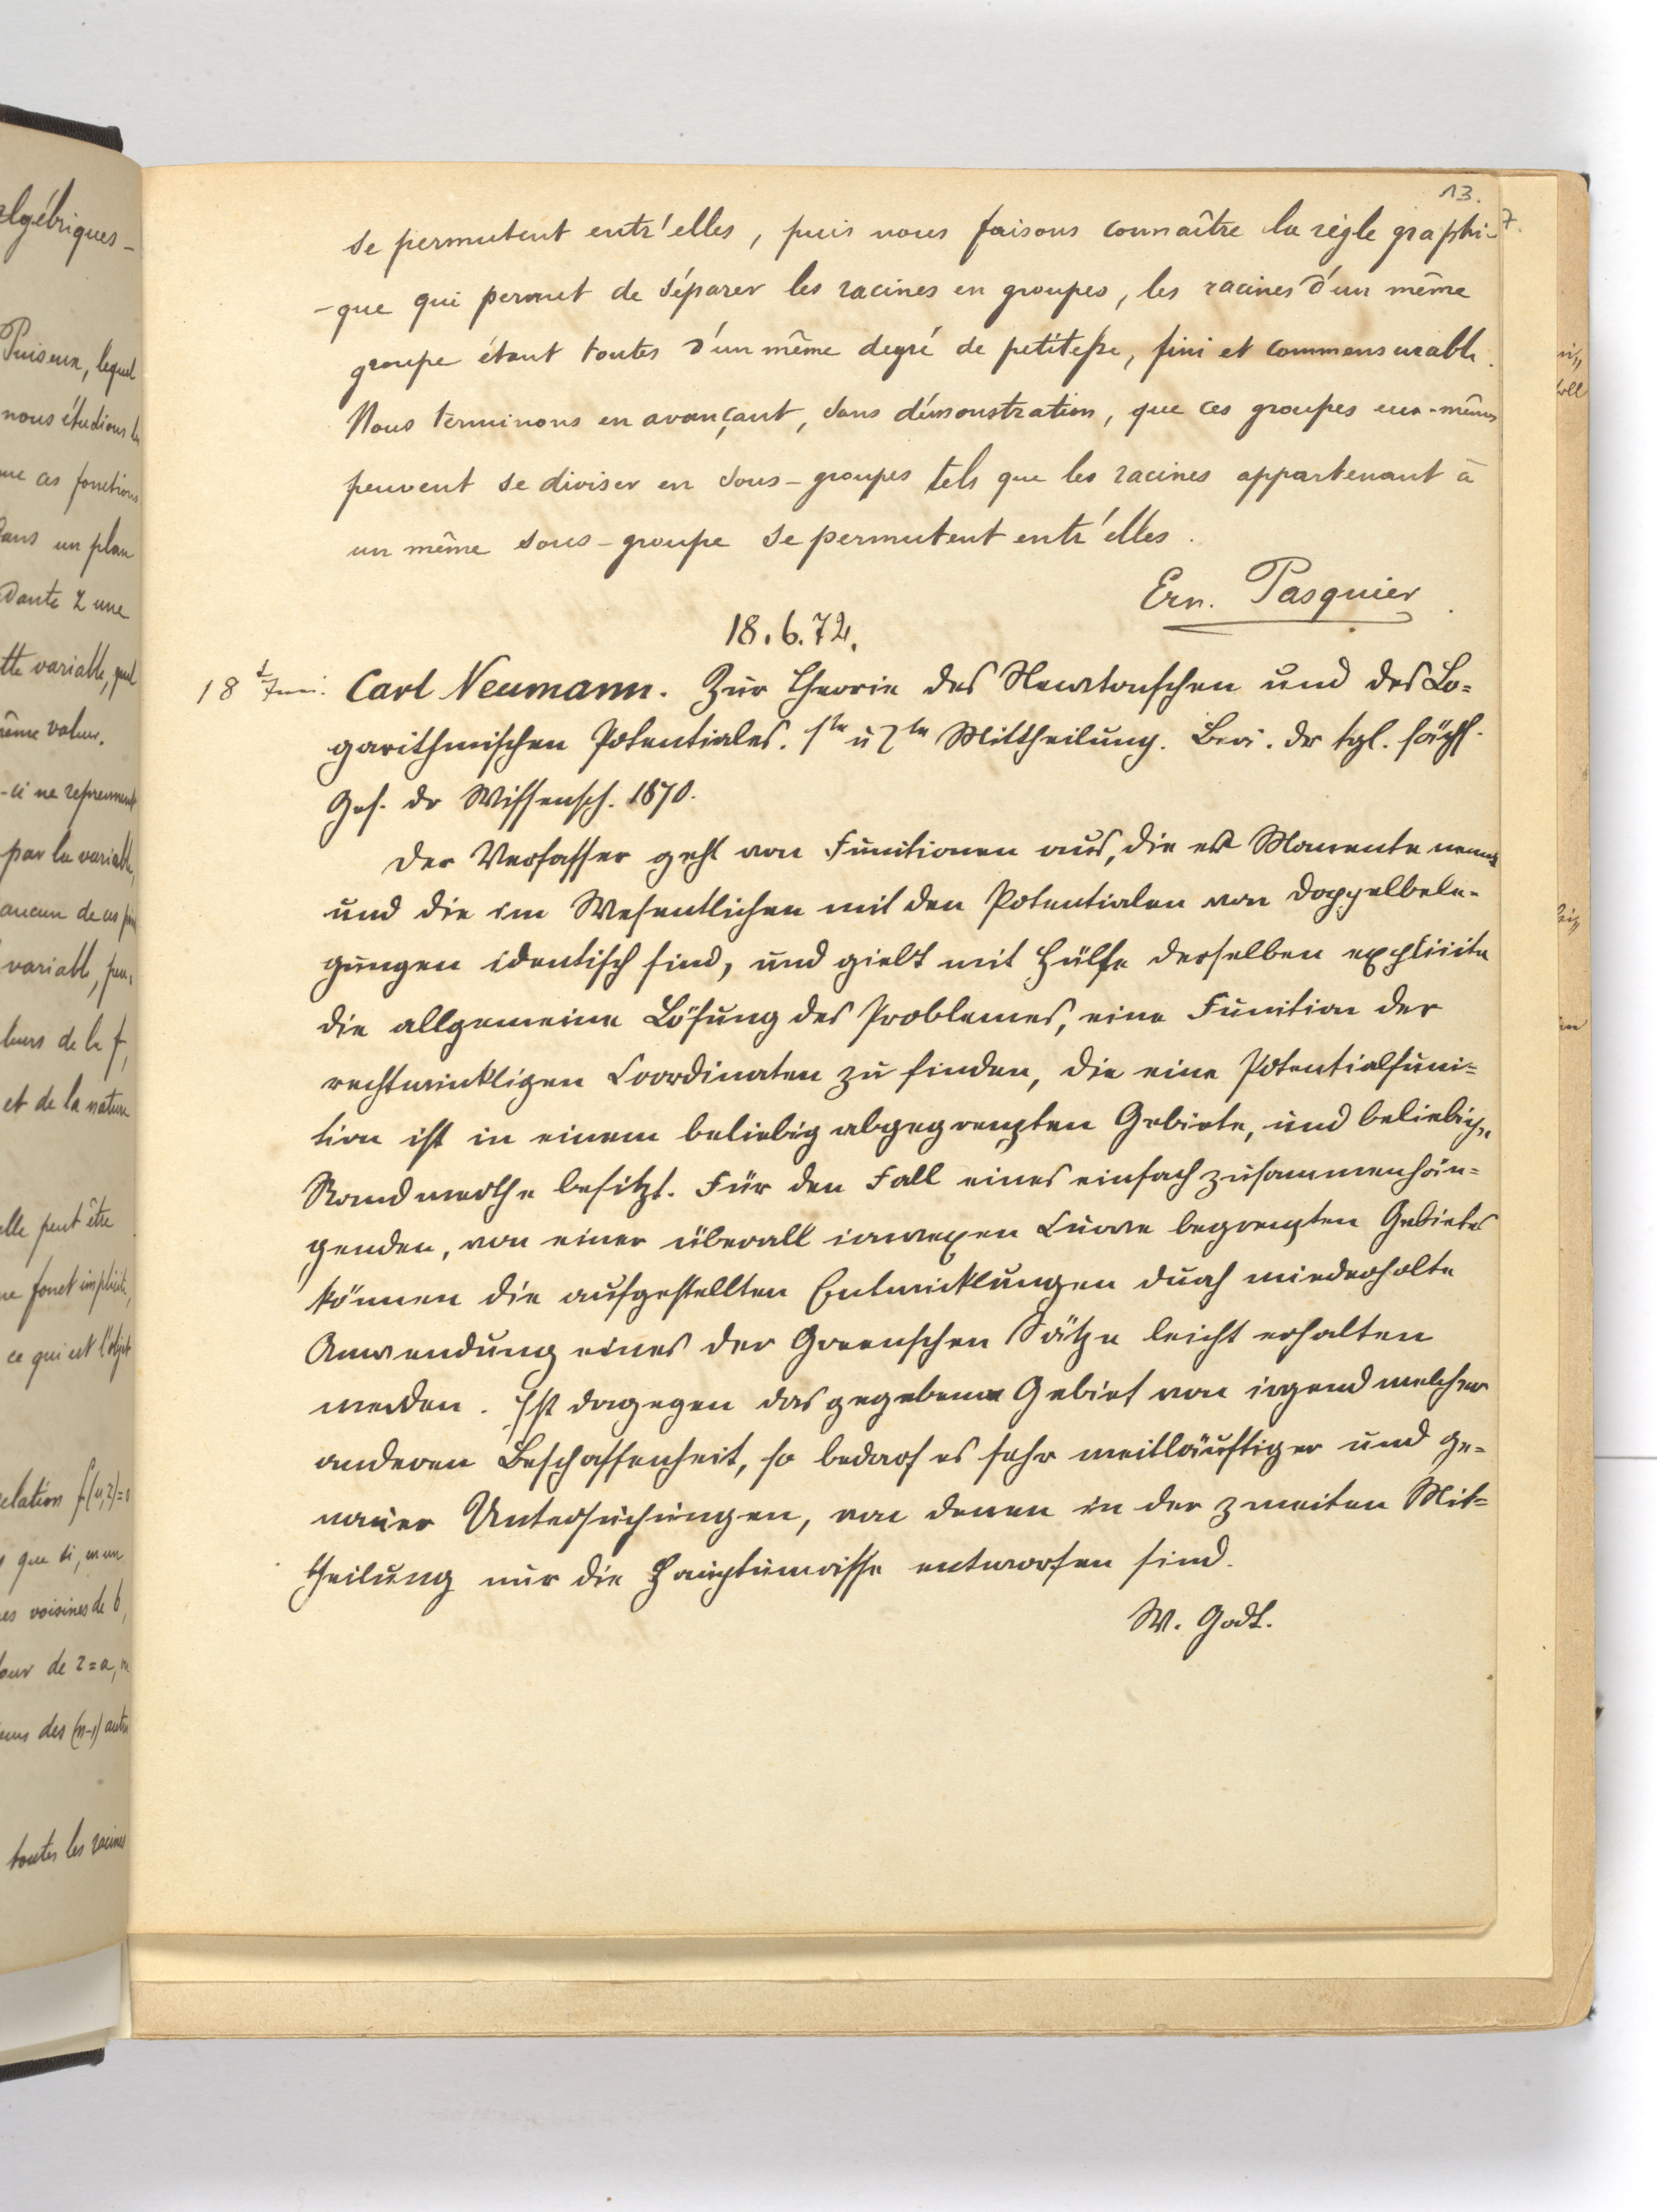 13.
7.
se permutent entr'elles, puis nous faisons connaître la règle graphi-
-que qui permet de séparer les racines en groupes, les racines d'un même
groupe étant toutes d'un même degré de petitesse, fini et commensurable.
Nous terminons en avançant, sans démonstration, que ces groupes eux-mêmes
peuvent se diviser en sous-groupes tels que les racines appartenant à
un même sous-groupe se permutent entr'elles.
Ern. Pasquier.
18.6.72.
18 Juni. Carl Neumann. Zur Theorie des Newtonschen und des Lo-
garithmischen Potentiales. 1te u 2te Mittheilung. Ber. der kgl. sächs.
Ges. dr Wissensch. 1870.
Der Verfasser geht von Functionen aus, die er Momente nennt
und die im Wesentlichen mit den Potentialen von Doppelbele-
gungen identisch sind, und giebt mit Hülfe derselben explicite
die allgemeine Lösung des Problemes, eine Function der
rechtwinkligen Coordinaten zu finden, die eine Potentialfunc-
tion ist in einem beliebig abgegrenzten Gebiete, und beliebige
Randwerthe besitzt. Für den Fall eines einfach zusammenhän-
genden, von einer überall convexen Curve begrenzten Gebietes
können die aufgestellten Entwicklungen durch wiederholte
Anwendung eines der Greenschen Sätze leicht erhalten
werden. Ist dagegen das gegebene Gebiet von irgend welcher
anderen Beschaffenheit, so bedarf es sehr weitläuftiger und ge-
nauer Untersuchungen, von denen in der zweiten Mit-
theilung nur die Hauptumrisse entworfen sind.
W. Godt.
algébriques-
Puiseux, lequel
nous étudions les
que ces fonctions
dans un plan
-dante z une
tte variable, quel
même valeur.
-ci ne reprennent
par la variable,
aucun de ces
variable,
et de la nature
elle peut être
ce qui est l'objet
relation f(u,z)=0
que si, en un
res voisines de b,
tour de z=a,
des (n-1) autres
toutes les racines